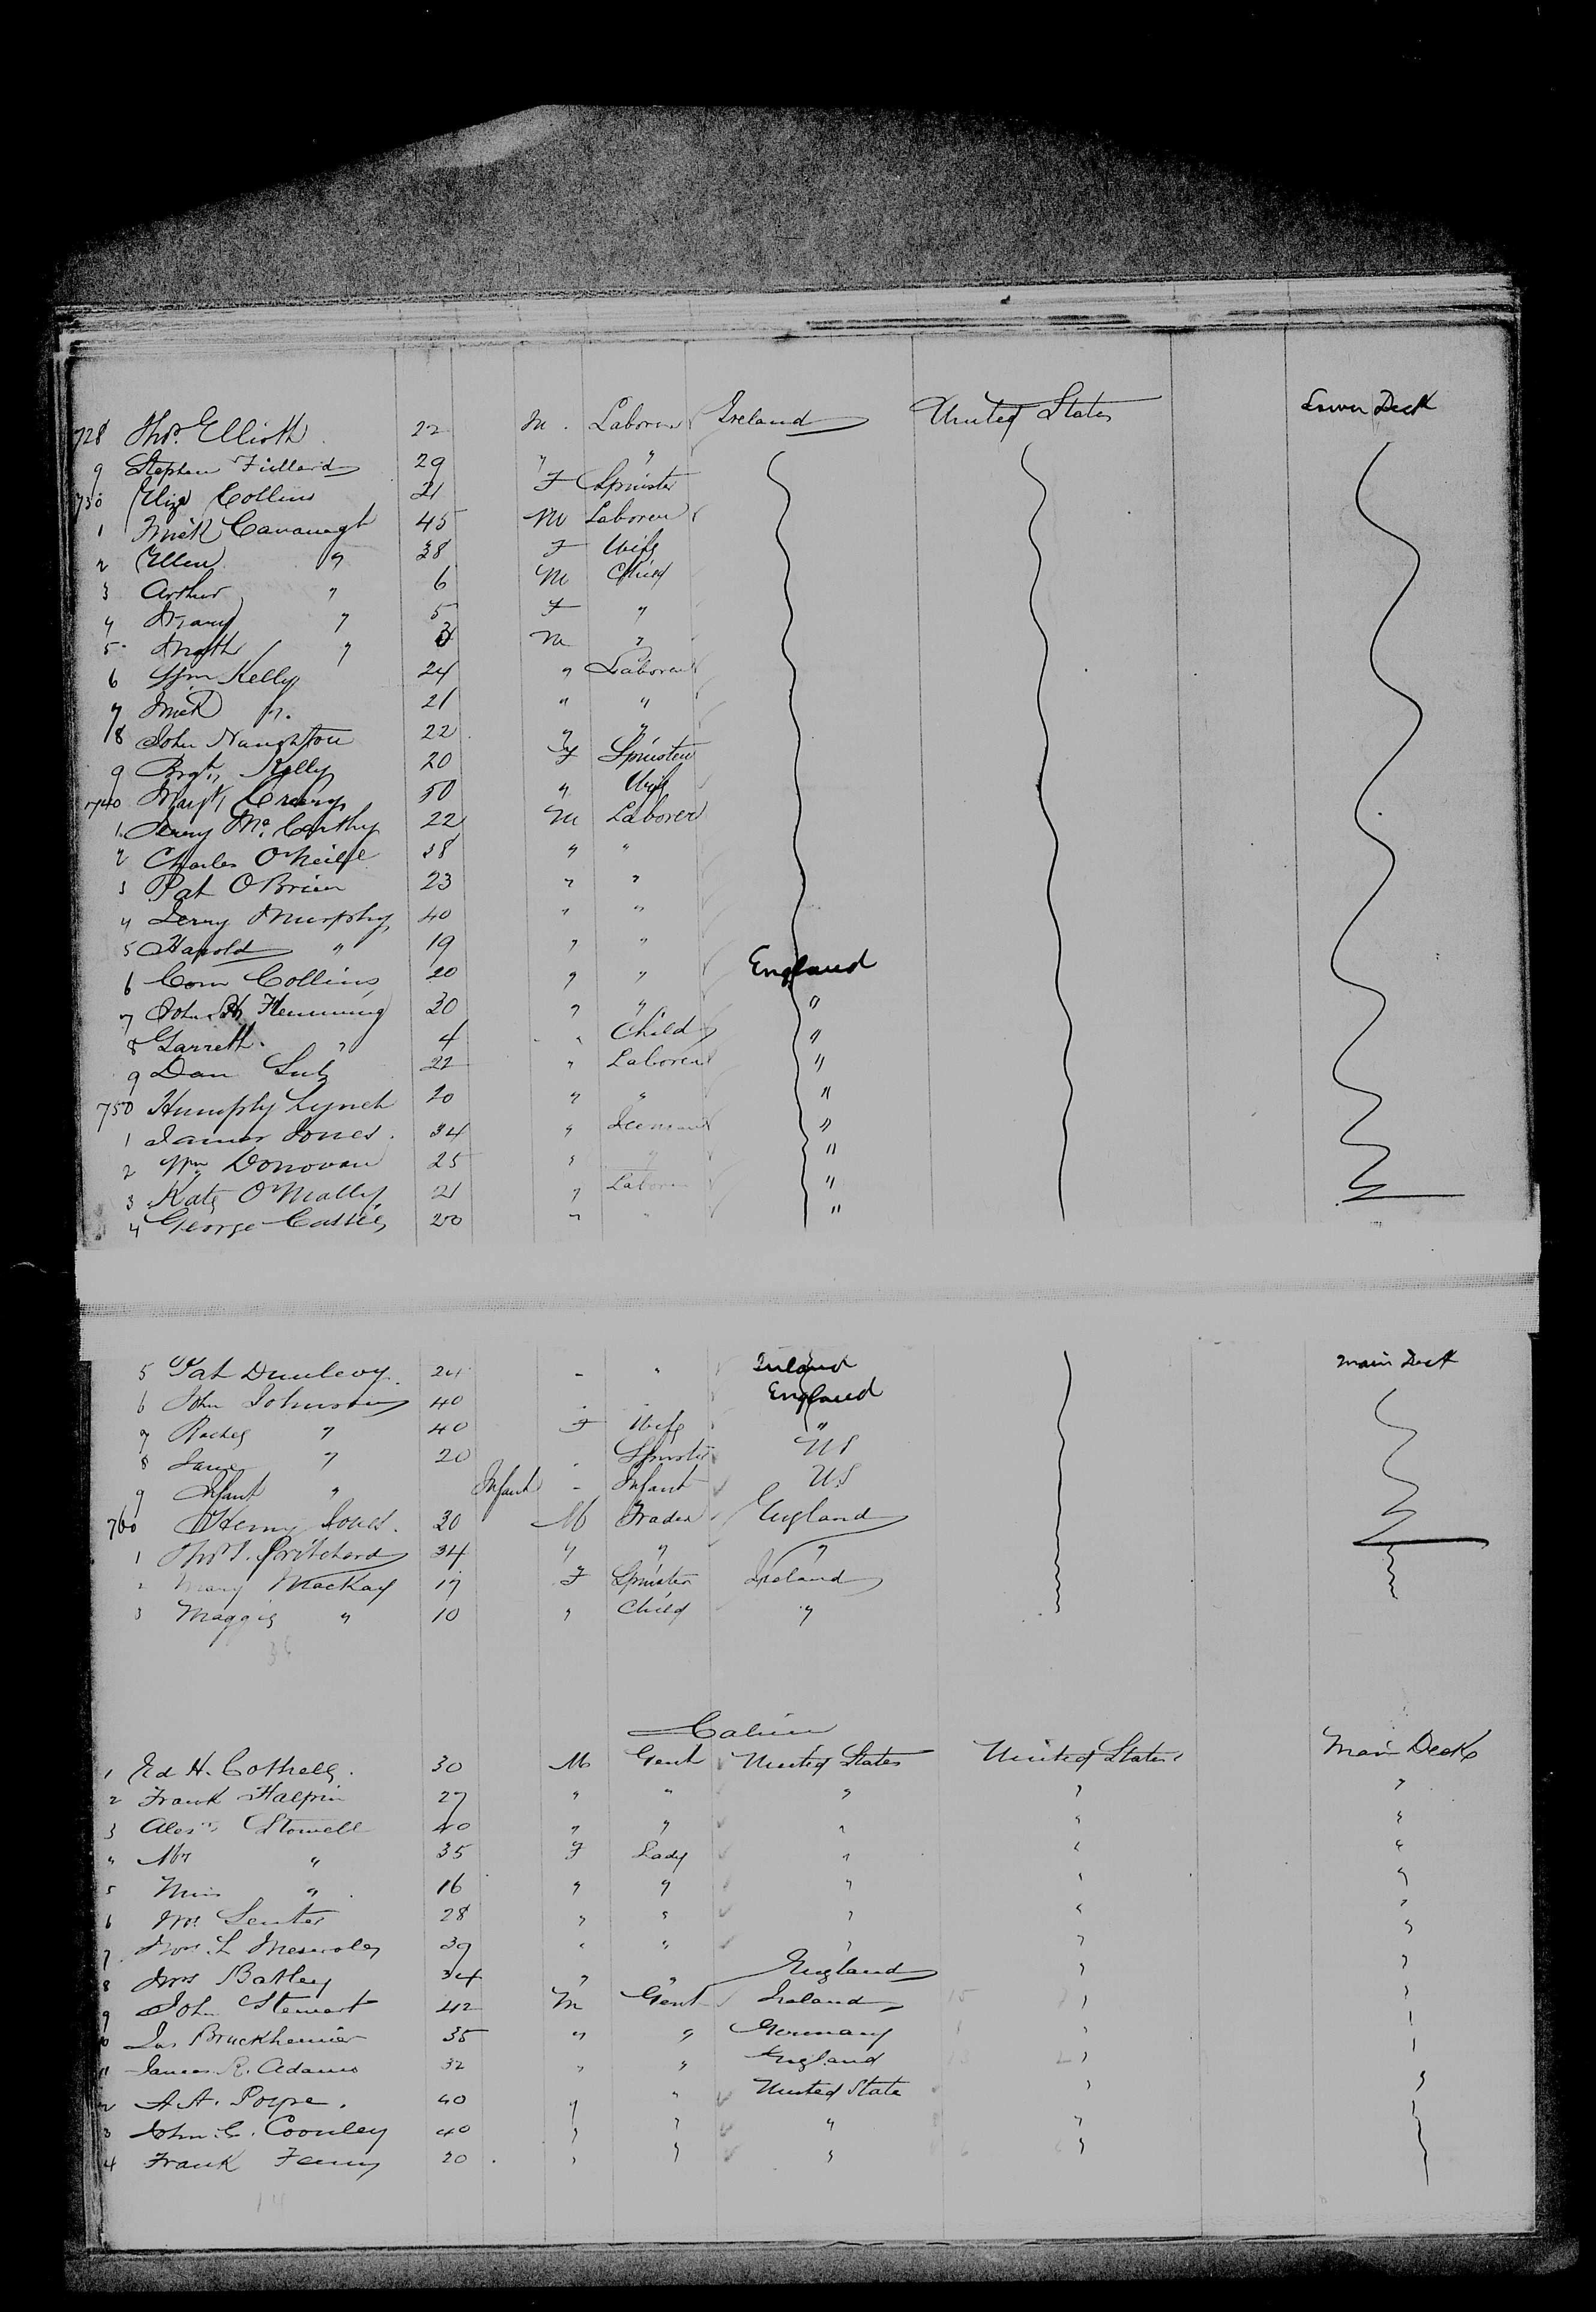 728 Thos. Elliott 22 M. Laborer Ireland United States Lower Deck
9 Stephen 29 " "
730 Eliza Collins 21 F Spinster
1 Mick Cavanagh 45 M Laborer
2 Ellen " 38 F Wife
3 Arthur " 6 M Child
4 Mary " 5 F "
5 Math " 3 M "
6 Wm Kelly 24 " Laborer
7 Mick " 21 " "
8 John Naughton 22 " "
9 Brgt. Kelly 20 F Spinster
740 Margt. 50 " Wife
1 Jerry McCarthy 22 M Laborer
2 Charles O'Neill 38 " "
3 Pat O'Brien 23 " "
4 Jerry Murphy 40 " "
5 Harold " 19 " "
6 Corn Collins 20 " " England
7 John Flemming 30 " " "
8 Garrett " 4 " Child "
9 Dan 22 " Laborer "
750 Humphy Lynch 20 " " "
1 James Jones. 34 " "
2 Wm Donovan 25 " " "
3 Kate O'Mally 21 " Laborer "
4 George 20 " " "
5 Pat Dunlevy. 24 - " Ireland Main Deck
6 John Johnson 40 England
7 Rachel " 40 F Wife "
8 Jane " 20 Spinster US
9 Infant " Infant - Infant U.S
760 Henry Jones. 30 M Trader England
1 Thos J. Pritchard 34 " " "
2 Mary MacKay 17 F Spinster Ireland
3 Maggie " 10 " Child "
Cabin
1 Ed H. Cottrell. 30 M Gent United States United States Main Deck
2 Frank Halpin 27 " " " " "
3 Stowell 40 " " " " "
" Mrs " 35 F Lady " " "
5 Miss " 16 " " " " "
6 Mrs. Senter 28 " " " " "
7 Mrs. L Meserole 39 " " " " "
8 Mrs Batley 34 " " England " "
9 John Stewart 42 M Gent Ireland " "
10 35 " " Germany " "
11 James R. Adams 32 " " England " "
2 A A. Pope. 40 " " United State " "
3 John C. Coonley 40 " " " " "
4 Frank 20 " " " "
14